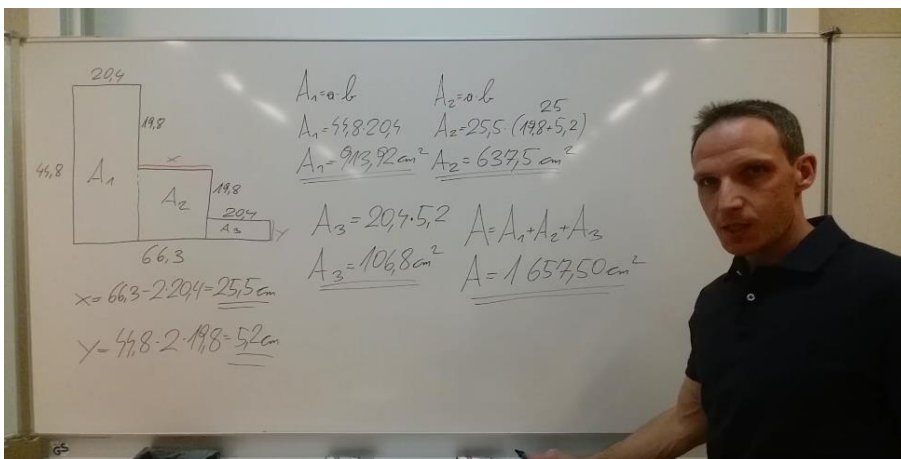 20,4
19,8
44,8
A₁
x
A₂
19,8
20,4
A₃
y
66,3
x = 66,3-2·20,4=25,5cm
y = 44,8-2·19,8=5,2cm
A₁=a·b
A₁=44,8·20,4
A₁=913,92cm²
A₂=a·b
25
A₂=25,5·(19,8+5,2)
A₂=637,5cm²
A₃=20,4·5,2
A₃=106,8cm²
A=A₁+A₂+A₃
A=1657,50cm²
GS